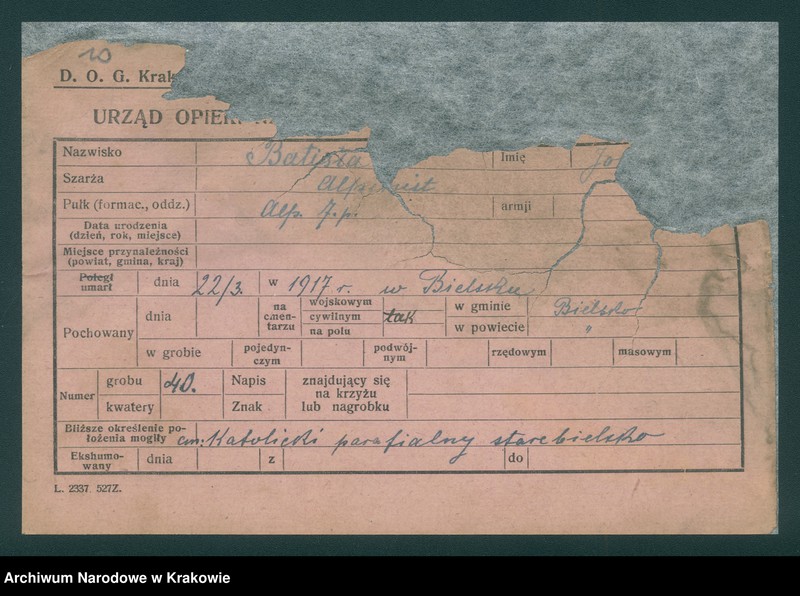 10
D. O. G. Krak
URZĄD OPIEKI
Nazwisko Batista Imię Jo
Szarża Alpinist
Pułk (formac., oddz.) Alp. 7. p. armji
Data urodzenia
(dzień, rok, miejsce)
Miejsce przynależności
(powiat, gmina, kraj)
Poległ
umarł dnia 22/3. w 1917 r. w Bielsku
Pochowany dnia na cmen-tarzu wojskowym w gminie Bielsko
cywilnym tak
na polu w powiecie "
w grobie pojedyn-czym podwój-nym rzędowym masowym
Numer grobu 40. Napis znajdujący się
na krzyżu
kwatery Znak lub nagrobku
Bliższe określenie po-
łożenia mogiły cm: Katolicki parafialny starebielsko
Ekshumo-
wany dnia z do
L. 2337 527Z.
Archiwum Narodowe w Krakowie